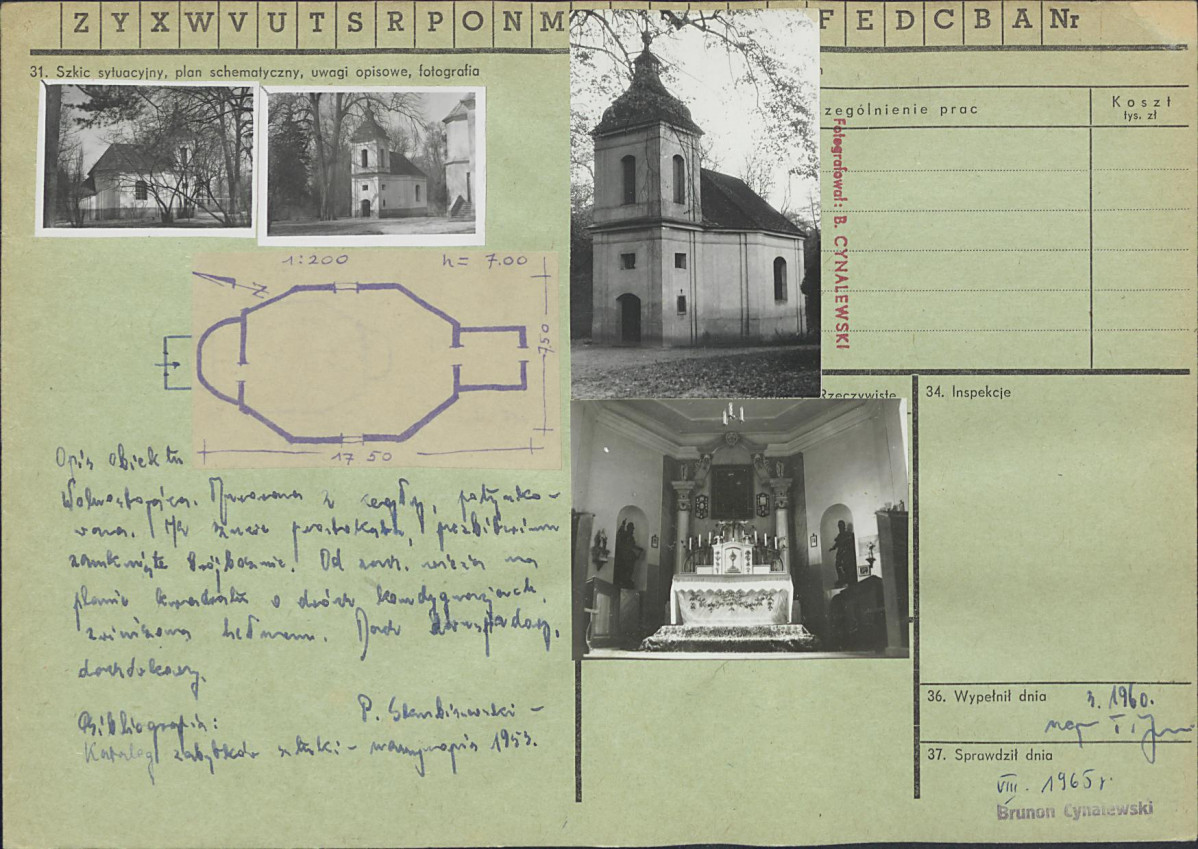 Z Y X W V U T S R P O N M F E D C B A Nr
31. Szkic sytuacyjny, plan schematyczny, uwagi opisowe, fotografia
zególnienie prac
Koszt
tys. zł
Fotografował: B. CYNALEWSKI
1:200 h = 7.00
N
7 50
17 50
Opis obiektu
Wolnostojąca. Murowana z cegły, potynko-
wana. Na rzucie prostokąta, prezbiterium
zamknięte trójbocznie. Od zach. wieża na
planie kwadratu o dwóch kondygnacjach,
zwieńczona hełmem. Dach dwuspadowy,
dachówkowy.
Bibliografia: P.
Katalog zabytków sztuki - 1953.
Rzeczywiste
34. Inspekcje
36. Wypełnił dnia 3. 1960.
mgr
37. Sprawdził dnia
VIII. 1965 r.
Brunon Cynalewski